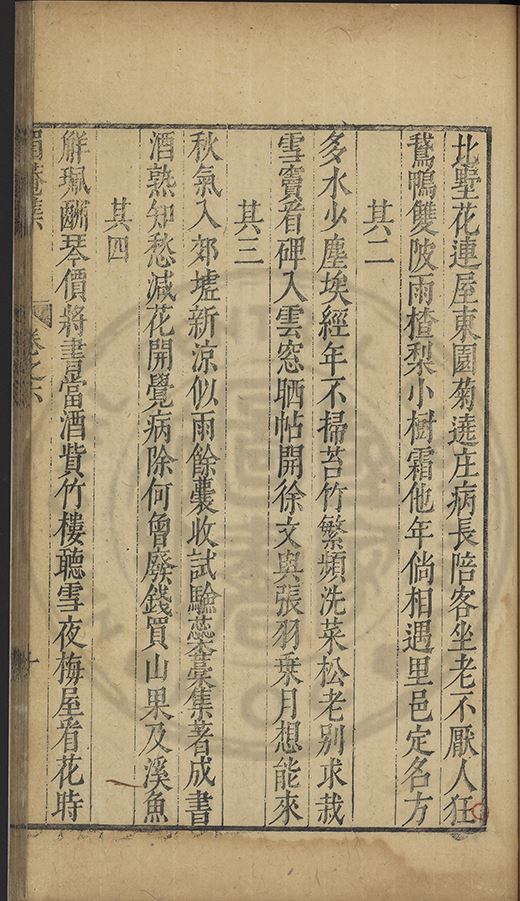 北墅花連屋東園菊遶庄病長陪客坐老不厭人狂
鵞鴨雙陂雨楂梨小樹霜他年倘相遇里邑定名方
其二
多水少塵埃經年不掃苔竹繁頻洗菜松老別求栽
雪竇看碑入雲窓晒帖開徐文與張羽乗月想能來
其三
秋氣入郊墟新涼似雨餘囊收試驗藥稾集著成書
酒熟知愁減花開覺病除何曾廢錢買山果及溪魚
其四
觧珮酬琴價將書當酒貲竹樓聽雪夜梅屋看花時
卷之六
十